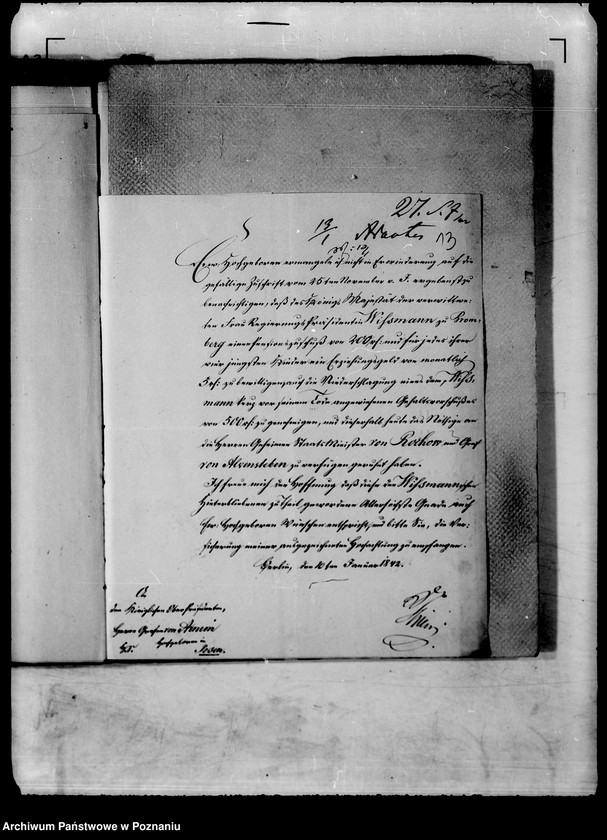 27. S. 7
12/1
13
Ew. Hochgeboren ermangele ich nicht in Erwiederung auf die
gefällige Zuschrift vom 25ten November v. J. ergebenst zu
benachrichtigen, daß des Königs Majestät der verwittwe-
ten Frau Regierungs Präsidentin Wißmann zu Brom-
berg einen Pensionszuschuß von 200 rt: und für jedes ihrer
vier jüngsten Kinder ein Erziehungsgeld von monatlich
5 rt: zu bewilligen, auch die Niederschlagung eines dem Wiß-
mann kurz vor seinem Tode angewiesenen Gehaltsvorschußes
von 500 rt: zu genehmigen, und dieserhalb heute das Nöthige an
die Herren Geheimen Staats Minister von Rochow und Graf
von Alvensleben zu verfügen geruht haben.
Ich freue mich der Hoffnung daß diese den Wißmannschen
Hinterbliebenen zu Theil gewordene Allerhöchste Gnade auch
Ew. Hochgeboren Wünschen entspricht, und bitte Sie, die Ver-
sicherung meiner ausgezeichneten Hochachtung zu empfangen.
Berlin, den 10ten Januar 1842.
An
den Königlichen Ober Präsidenten,
Herrn Grafen von Arnim
Hochgeboren in
Posen.
Archiwum Państwowe w Poznaniu